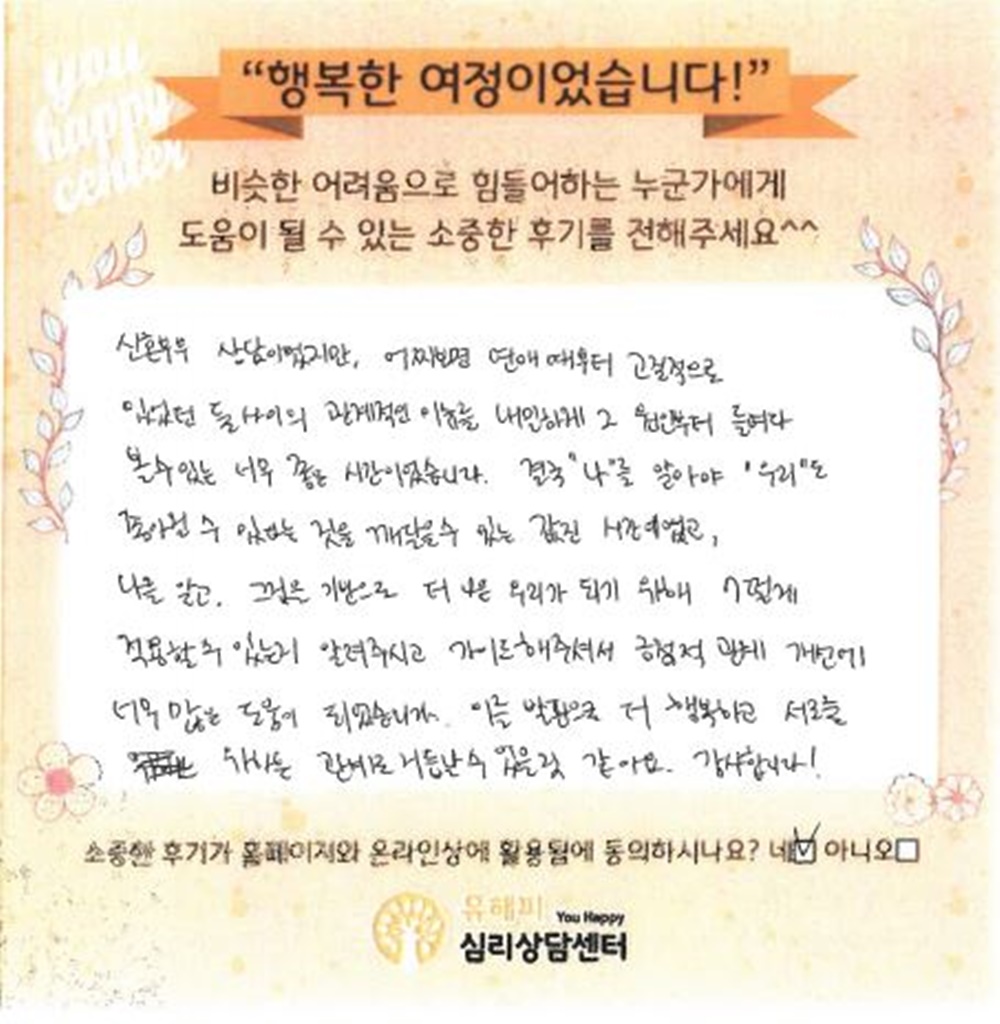 you
happy
center
“행복한 여정이었습니다!”
비슷한 어려움으로 힘들어하는 누군가에게
도움이 될 수 있는 소중한 후기를 전해주세요^^
신혼부부 상담이었지만, 어찌보면 연애 때부터 고질적으로
있었던 둘 사이의 관계적인 이슈를 내밀하게 그 원인부터 들여다
볼 수 있는 너무 좋은 시간이었습니다. 결국 "나"를 알아야 "우리"도
좋아질 수 있다는 것을 깨달을 수 있는 값진 시간이었고,
나를 알고, 그것을 기반으로 더 나은 우리가 되기 위해 어떻게
적용할 수 있는지 알려주시고 가이드해주셔서 긍정적 관계 개선에
너무 많은 도움이 되었습니다. 이를 발판으로 더 행복하고 서로를
위하는 관계로 거듭날 수 있을 것 같아요. 감사합니다!
소중한 후기가 홈페이지와 온라인상에 활용됨에 동의하시나요? 네☑ 아니오☐
유해피 You Happy
심리상담센터